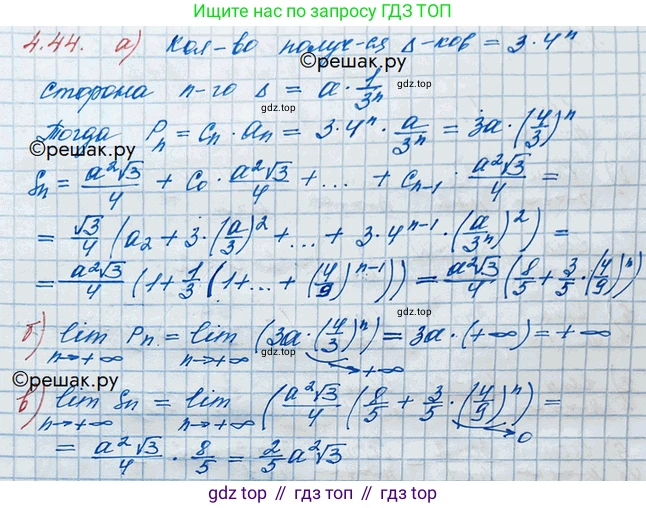 Ищите по запросу ГДЗ ТОП
4.44. а) кол-во получ-ся Δ-ков = 3·4ⁿ
©решак.ру
gdz.top
сторона n-го Δ = a·1/3ⁿ
gdz.top
Тогда Pₙ = Cₙ·aₙ = 3·4ⁿ·a/3ⁿ = 3a·(4/3)ⁿ
©решак.ру
Sₙ = a²√3/4 + C₀·a²√3/4 + ... + Cₙ₋₁·a²√3/4 =
gdz.top
= √3/4 (a₂ + 3·(a/3)² + ... + 3·4ⁿ⁻¹·(a/3ⁿ)²) =
= a²√3/4 (1 + 1/3 (1 + ... + (4/9)ⁿ⁻¹)) = a²√3/4 (8/5 + 3/5·(4/9)ⁿ)
б) lim Pₙ = lim (3a·(4/3)ⁿ) = 3a·(+∞) = +∞
n→+∞ n→+∞ →+∞
gdz.top
©решак.ру
в) lim Sₙ = lim (a²√3/4 (8/5 + 3/5·(4/9)ⁿ)) =
n→+∞ n→+∞ →0
= a²√3/4 · 8/5 = 2/5 a²√3
gdz top // гдз топ // gdz top